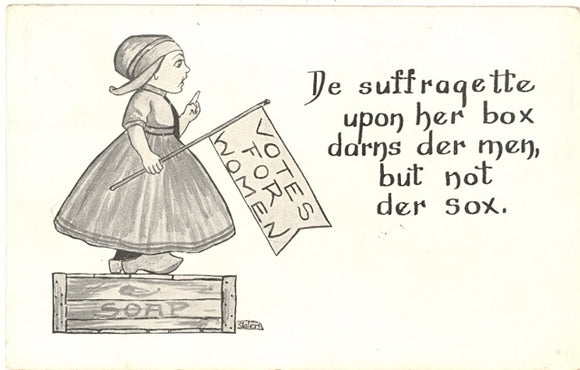 De suffragette
upon her box
darns der men,
but not
der sox.
VOTES
FOR
WOMEN
SOAP